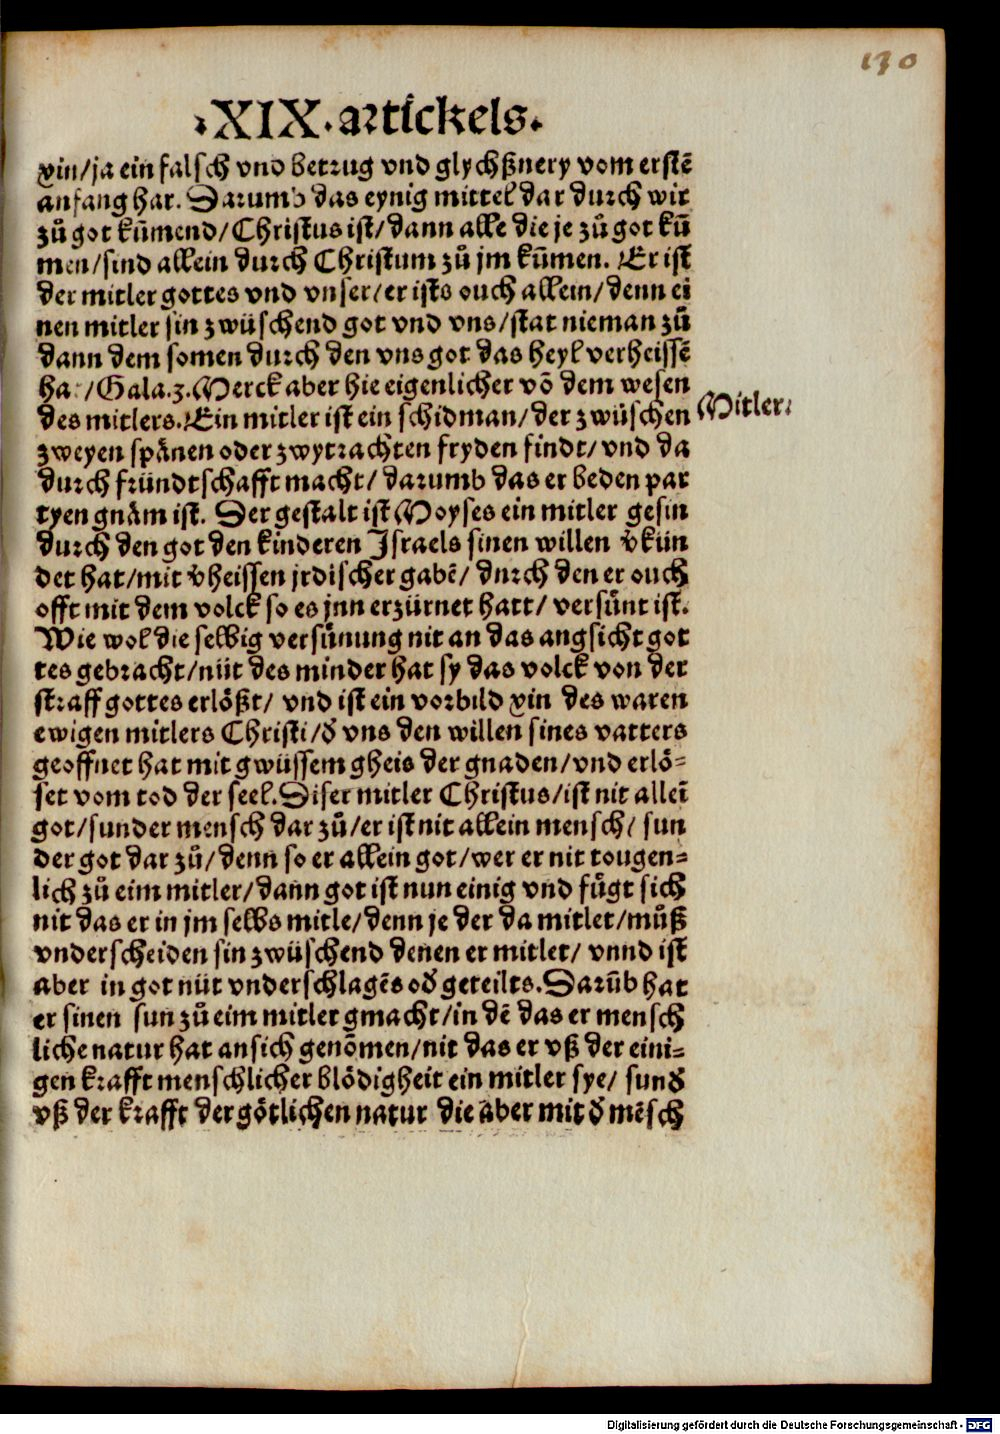 130
·XIX·artickels.
xin/ja ein falsch vnd betrug vnd glychßnery vom erstē
anfang har. Darumb das eynig mittel dar durch wir
zů got kūmend/Christus ist/dann alle die je zů got kū
men/sind allein durch Christum zů jm kūmen. Er ist
der mitler gottes vnd vnser/er ists ouch allein/denn ei
nen mitler sin zwüschend got vnd vns/stat nieman zů
dann dem somen durch den vns got das heyl verheissē
ha /Gala.3.Merck aber hie eigenlicher vō dem wesen
des mitlers.Ein mitler ist ein schidman/der zwüschen
Mitler.
zweyen spånen oder zwytrachten fryden findt/vnd da
durch fründtschafft macht/darumb das er beden par
tyen gnåm ist. Der gestalt ist Moyses ein mitler gesin
durch den got den kinderen Israels sinen willen v̄kün
det hat/mit v̄heissen jrdischer gabē/durch den er ouch
offt mit dem volck so es jnn erzürnet hatt/versůnt ist.
Wie wol die selbig versůnung nit an das angsicht got
tes gebracht/nüt des minder hat sy das volck von der
straff gottes erlößt/ vnd ist ein vorbild xin des waren
ewigen mitlers Christi/d̄ vns den willen sines vatters
geoffnet hat mit gwüssem gheis der gnaden/vnd erlö-
set vom tod der seel.Diser mitler Christus/ist nit alleī
got/sunder mensch dar zů/er ist nit allein mensch/ sun
der got dar zů/denn so er allein got/wer er nit tougen-
lich zů eim mitler/dann got ist nun einig vnd fůgt sich
nit das er in jm selbs mitle/denn je der da mitlet/můß
vnderscheiden sin zwüschend denen er mitlet/ vnnd ist
aber in got nüt vnderschlagēs od̄ geteilts.Darūb hat
er sinen sun zů eim mitler gmacht/in dē das er mensch
liche natur hat an sich genōmen/nit das er vß der eini-
gen krafft menschlicher blödigheit ein mitler sye/ sund̄
vß der krafft der götlichen natur die aber mit d̄ mēsch
Digitalisierung gefördert durch die Deutsche Forschungsgemeinschaft - DFG